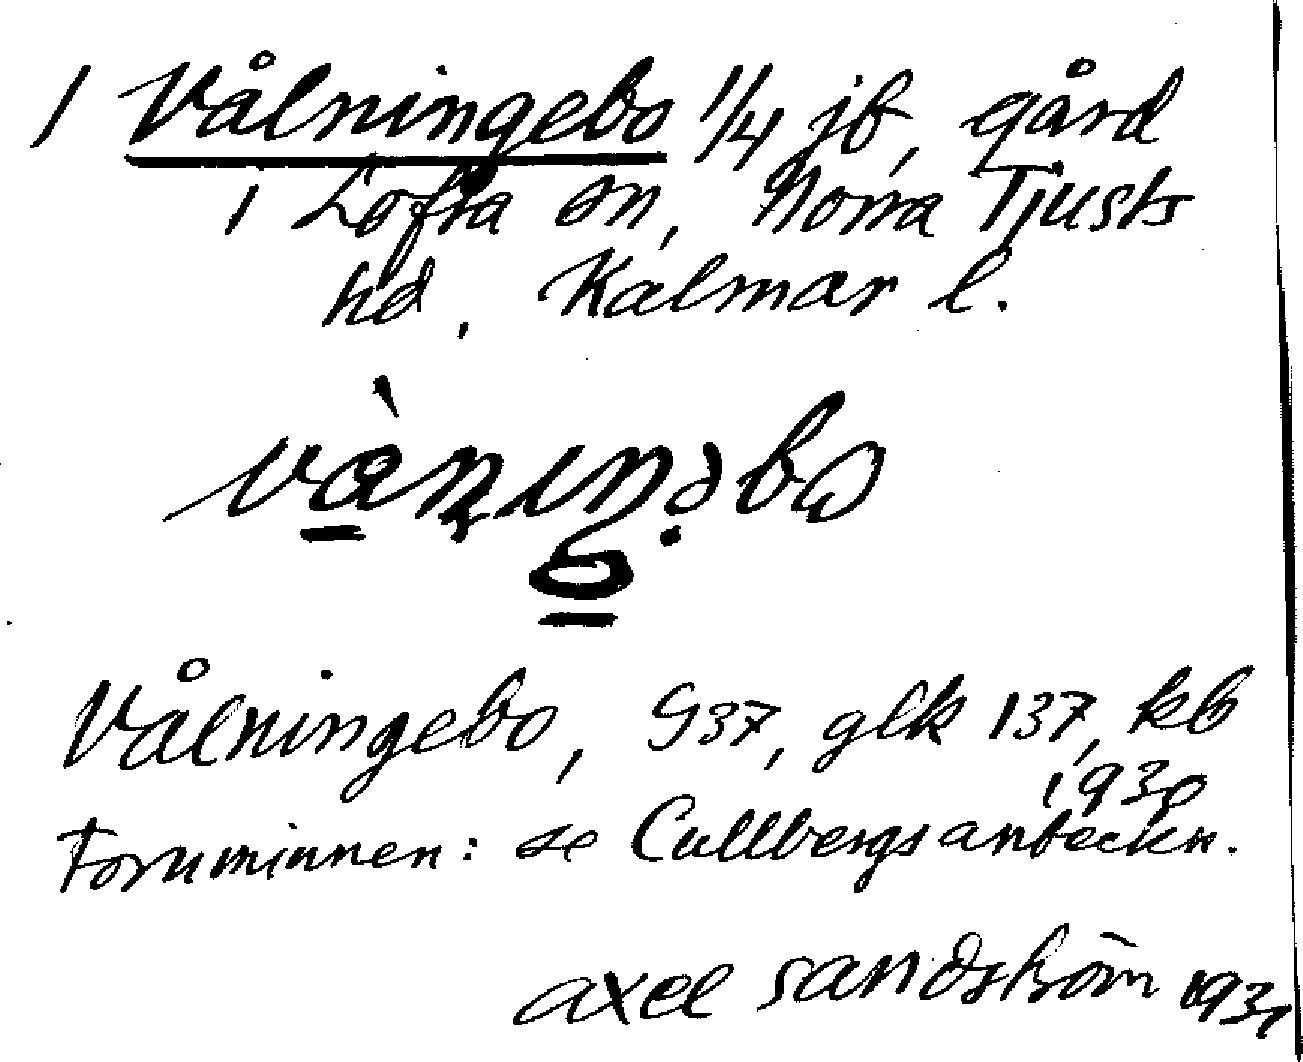 1 Vålningebo 1/4 jb, gård
i Lofta sn, Norra Tjusts
hd, Kalmar l.
Vålningebo, G37, glk 137, kb
1930
Fornminnen: se Cullbergs anteckn.
Axel Sandström 1931